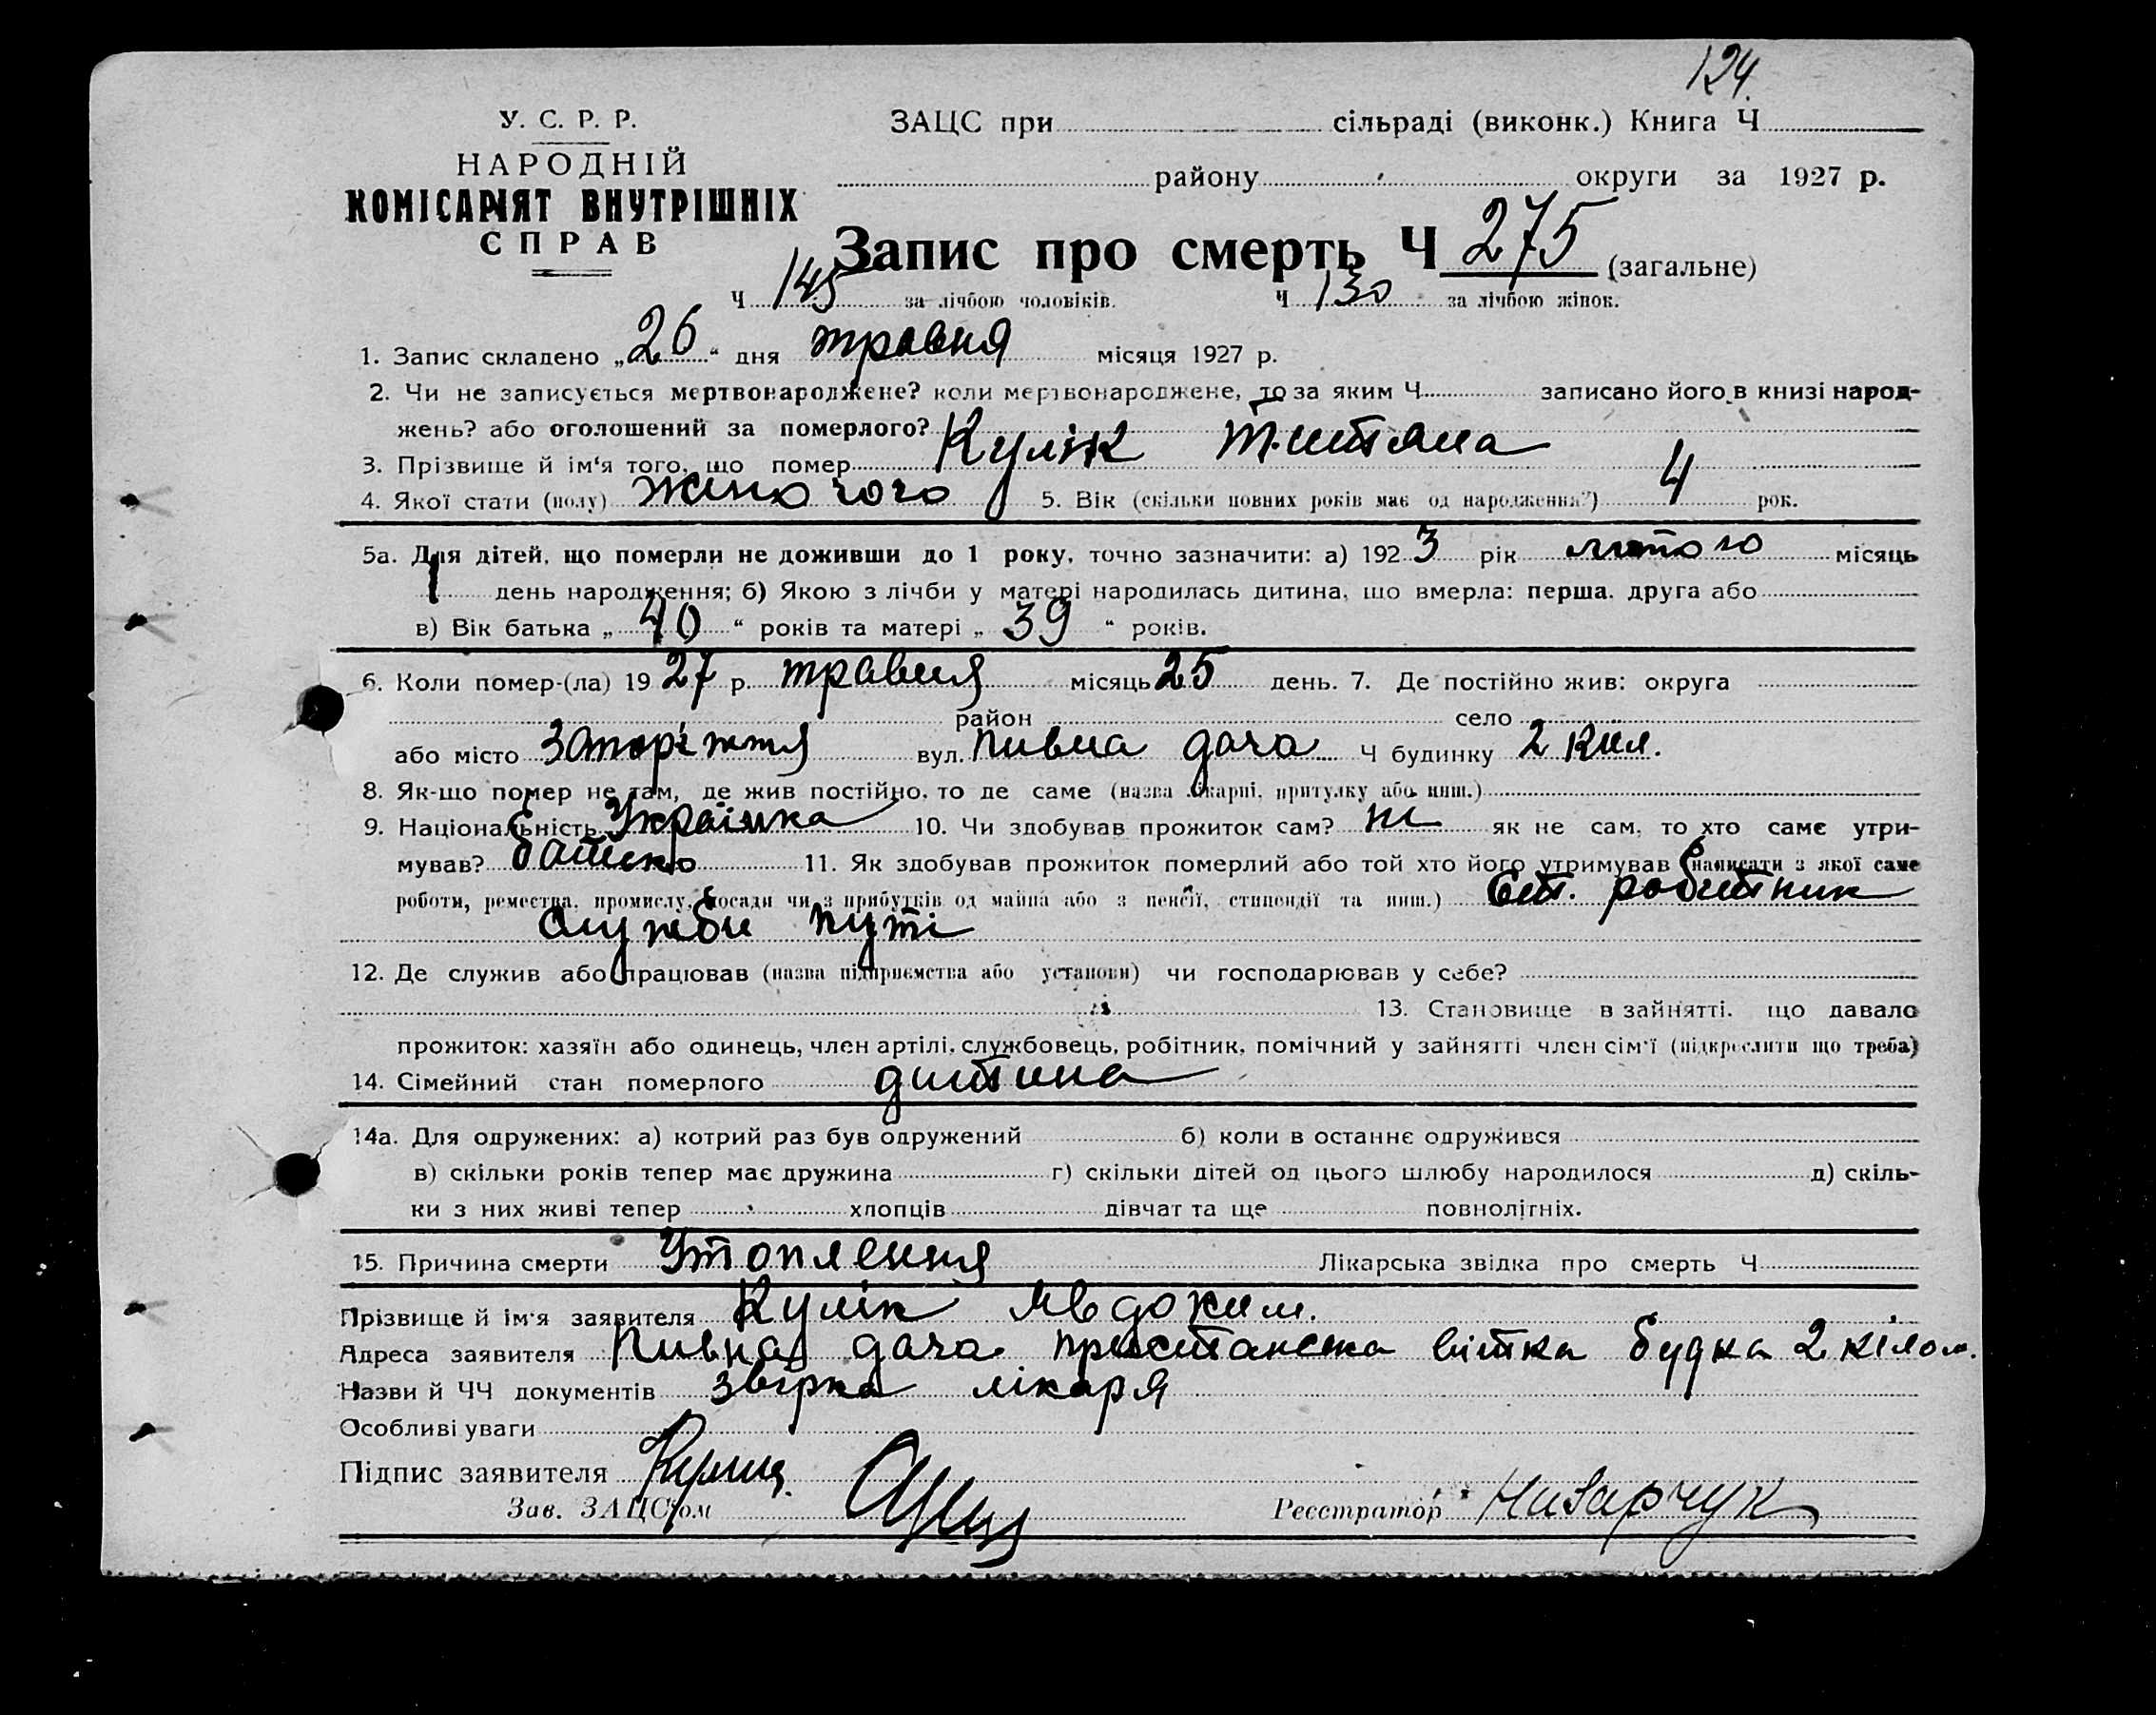 124.
У. С. Р. Р.
НАРОДНІЙ
КОМІСАРІЯТ ВНУТРІШНІХ
СПРАВ
ЗАЦС при сільраді (виконк.) Книга Ч
району округи за 1927 р.
Запис про смерть Ч 275 (загальне)
Ч 145 за лічбою чоловіків. Ч 130 за лічбою жінок.
1. Запис складено „26“ дня травня місяця 1927 р.
2. Чи не записується мертвонароджене? коли мертвонароджене, то за яким Ч записано його в книзі народ-
жень? або оголошений за померлого?
3. Прізвище й ім‘я того, що помер Кулік
4. Якої стати (полу) жиночого 5. Вік (скільки повних років має од народження?) 4 рок.
5а. Для дітей, що померли не доживши до 1 року, точно зазначити: а) 1923 рік лютого місяць
1 день народження; б) Якою з лічби у матері народилась дитина, що вмерла: перша, друга або
в) Вік батька „40“ років та матері „39“ років.
6. Коли помер-(ла) 1927 р. травня місяць 25 день. 7. Де постійно жив: округа
район село
або місто Запоріжжя вул. пивна дача Ч будинку 2 кил.
8. Як-що помер не там, де жив постійно, то де саме (назва лікарні, притулку або инш.)
9. Національність Українка 10. Чи здобував прожиток сам? ні як не сам, то хто саме утри-
мував? батько 11. Як здобував прожиток померлий або той хто його утримував (написати з якої саме
роботи, ремества, промислу, посади чи з прибутків од майна або з пенсії, стипендії та инш.) робітник
служби путі
12. Де служив або працював (назва підприємства або установи) чи господарював у себе?
13. Становище в зайнятті, що давало
прожиток: хазяїн або одинець, член артілі, службовець, робітник, помічний у зайнятті член сім'ї (підкреслити що треба)
14. Сімейний стан померлого дитина
14а. Для одружених: а) котрий раз був одружений б) коли в останнє одружився
в) скільки років тепер має дружина г) скільки дітей од цього шлюбу народилося д) скіль-
ки з них живі тепер хлопців дівчат та ще повнолітніх.
15. Причина смерти Утоплення Лікарська звідка про смерть Ч
Прізвище й ім'я заявителя Кулік Явдоким.
Адреса заявителя Пивна дача вітка будка 2 кілом.
Назви й ЧЧ документів лікаря
Особливі уваги
Підпис заявителя
Зав. ЗАЦС'ом Реєстратор Назарчук